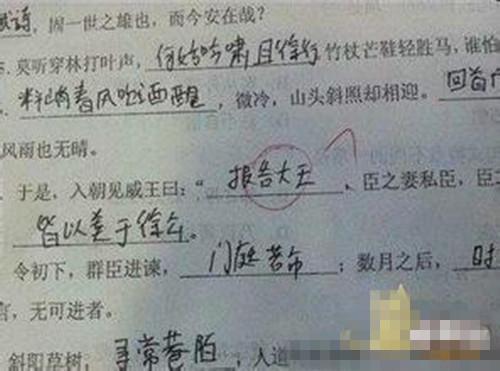 诗，固一世之雄也，而今安在哉？
莫听穿林打叶声，何妨吟啸且徐行 竹杖芒鞋轻胜马，谁怕
料峭春风吹酒醒，微冷，山头斜照却相迎。回首
风雨也无晴。
于是，入朝见威王曰：“报告大王、臣之妻私臣，臣
皆以美于徐公。
令初下，群臣进谏，门庭若市；数月之后，时
言，无可进者。
斜阳草树，寻常巷陌，人道